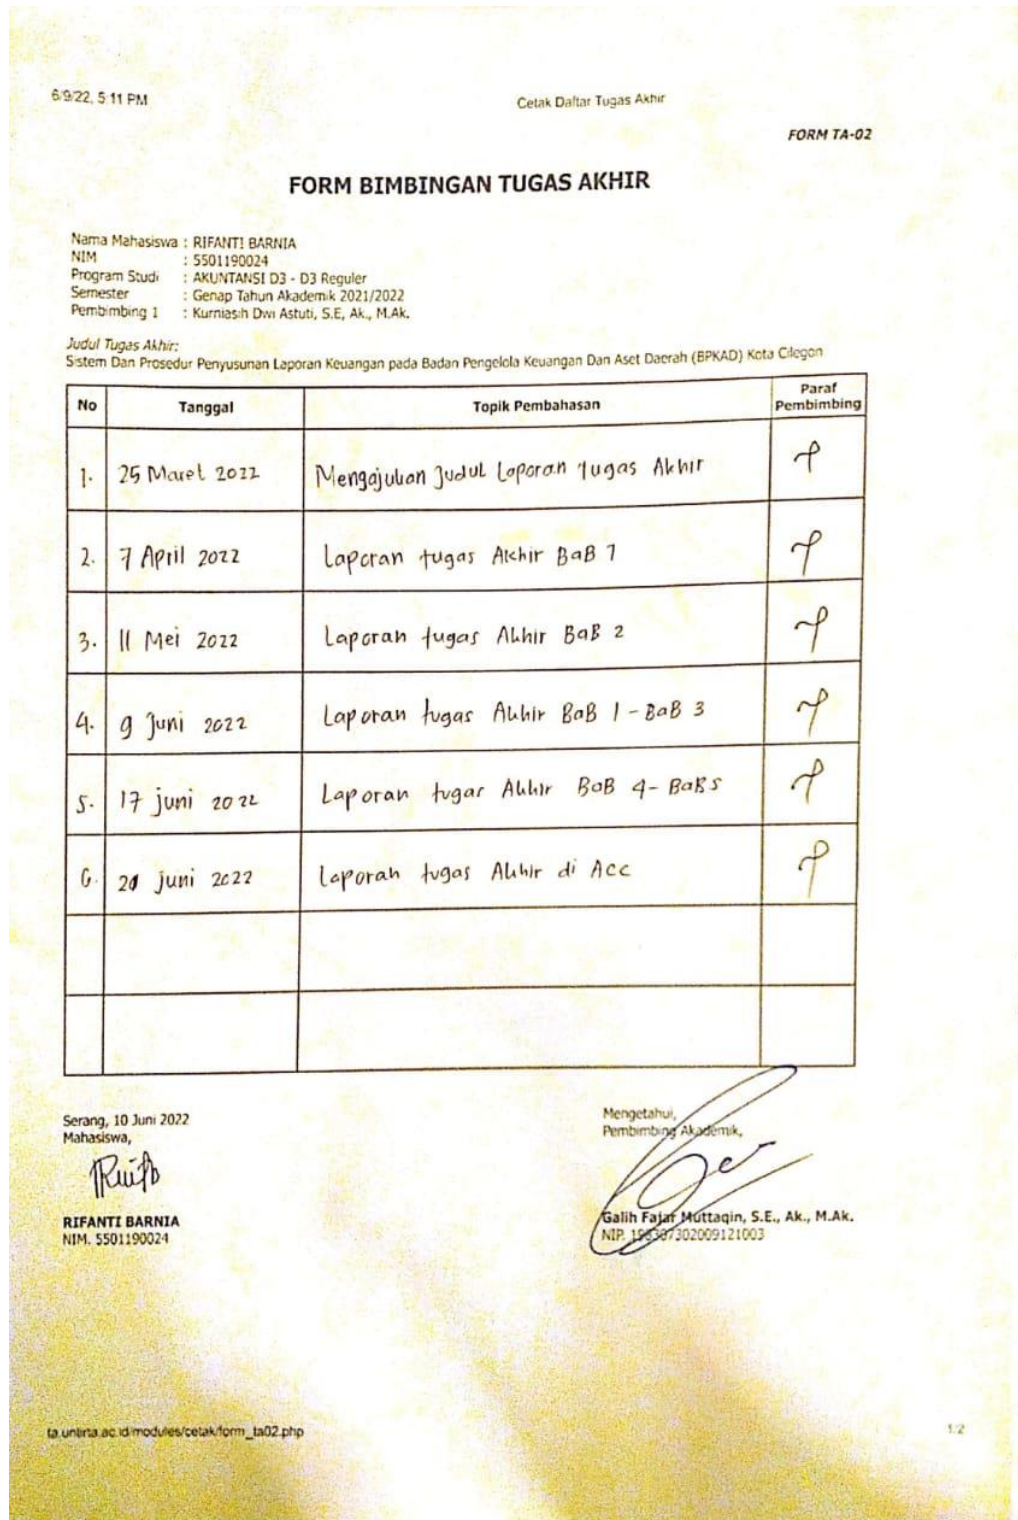 6/9/22, 5:11 PM
Cetak Daftar Tugas Akhir
FORM TA-02
FORM BIMBINGAN TUGAS AKHIR
Nama Mahasiswa : RIFANTI BARNIA
NIM : 5501190024
Program Studi : AKUNTANSI D3 - D3 Reguler
Semester : Genap Tahun Akademik 2021/2022
Pembimbing 1 : Kurniasih Dwi Astuti, S.E, Ak., M.Ak.
Judul Tugas Akhir:
Sistem Dan Prosedur Penyusunan Laporan Keuangan pada Badan Pengelola Keuangan Dan Aset Daerah (BPKAD) Kota Cilegon
No Tanggal Topik Pembahasan Paraf Pembimbing
1. 25 Maret 2022 Mengajukan Judul Laporan tugas Akhir
2. 7 April 2022 Laporan tugas Akhir BaB 1
3. 11 Mei 2022 Laporan tugas Akhir BaB 2
4. 9 Juni 2022 Laporan tugas Akhir BaB 1 - BaB 3
5. 17 juni 2022 Laporan tugas Akhir BaB 4 - BaB 5
6. 20 juni 2022 Laporan tugas Akhir di Acc
Serang, 10 Juni 2022
Mahasiswa,
RIFANTI BARNIA
NIM. 5501190024
Mengetahui,
Pembimbing Akademik,
Galih Fajar Muttaqin, S.E., Ak., M.Ak.
NIP.
ta.untirta.ac.id/modules/cetak/form_ta02.php
1/2